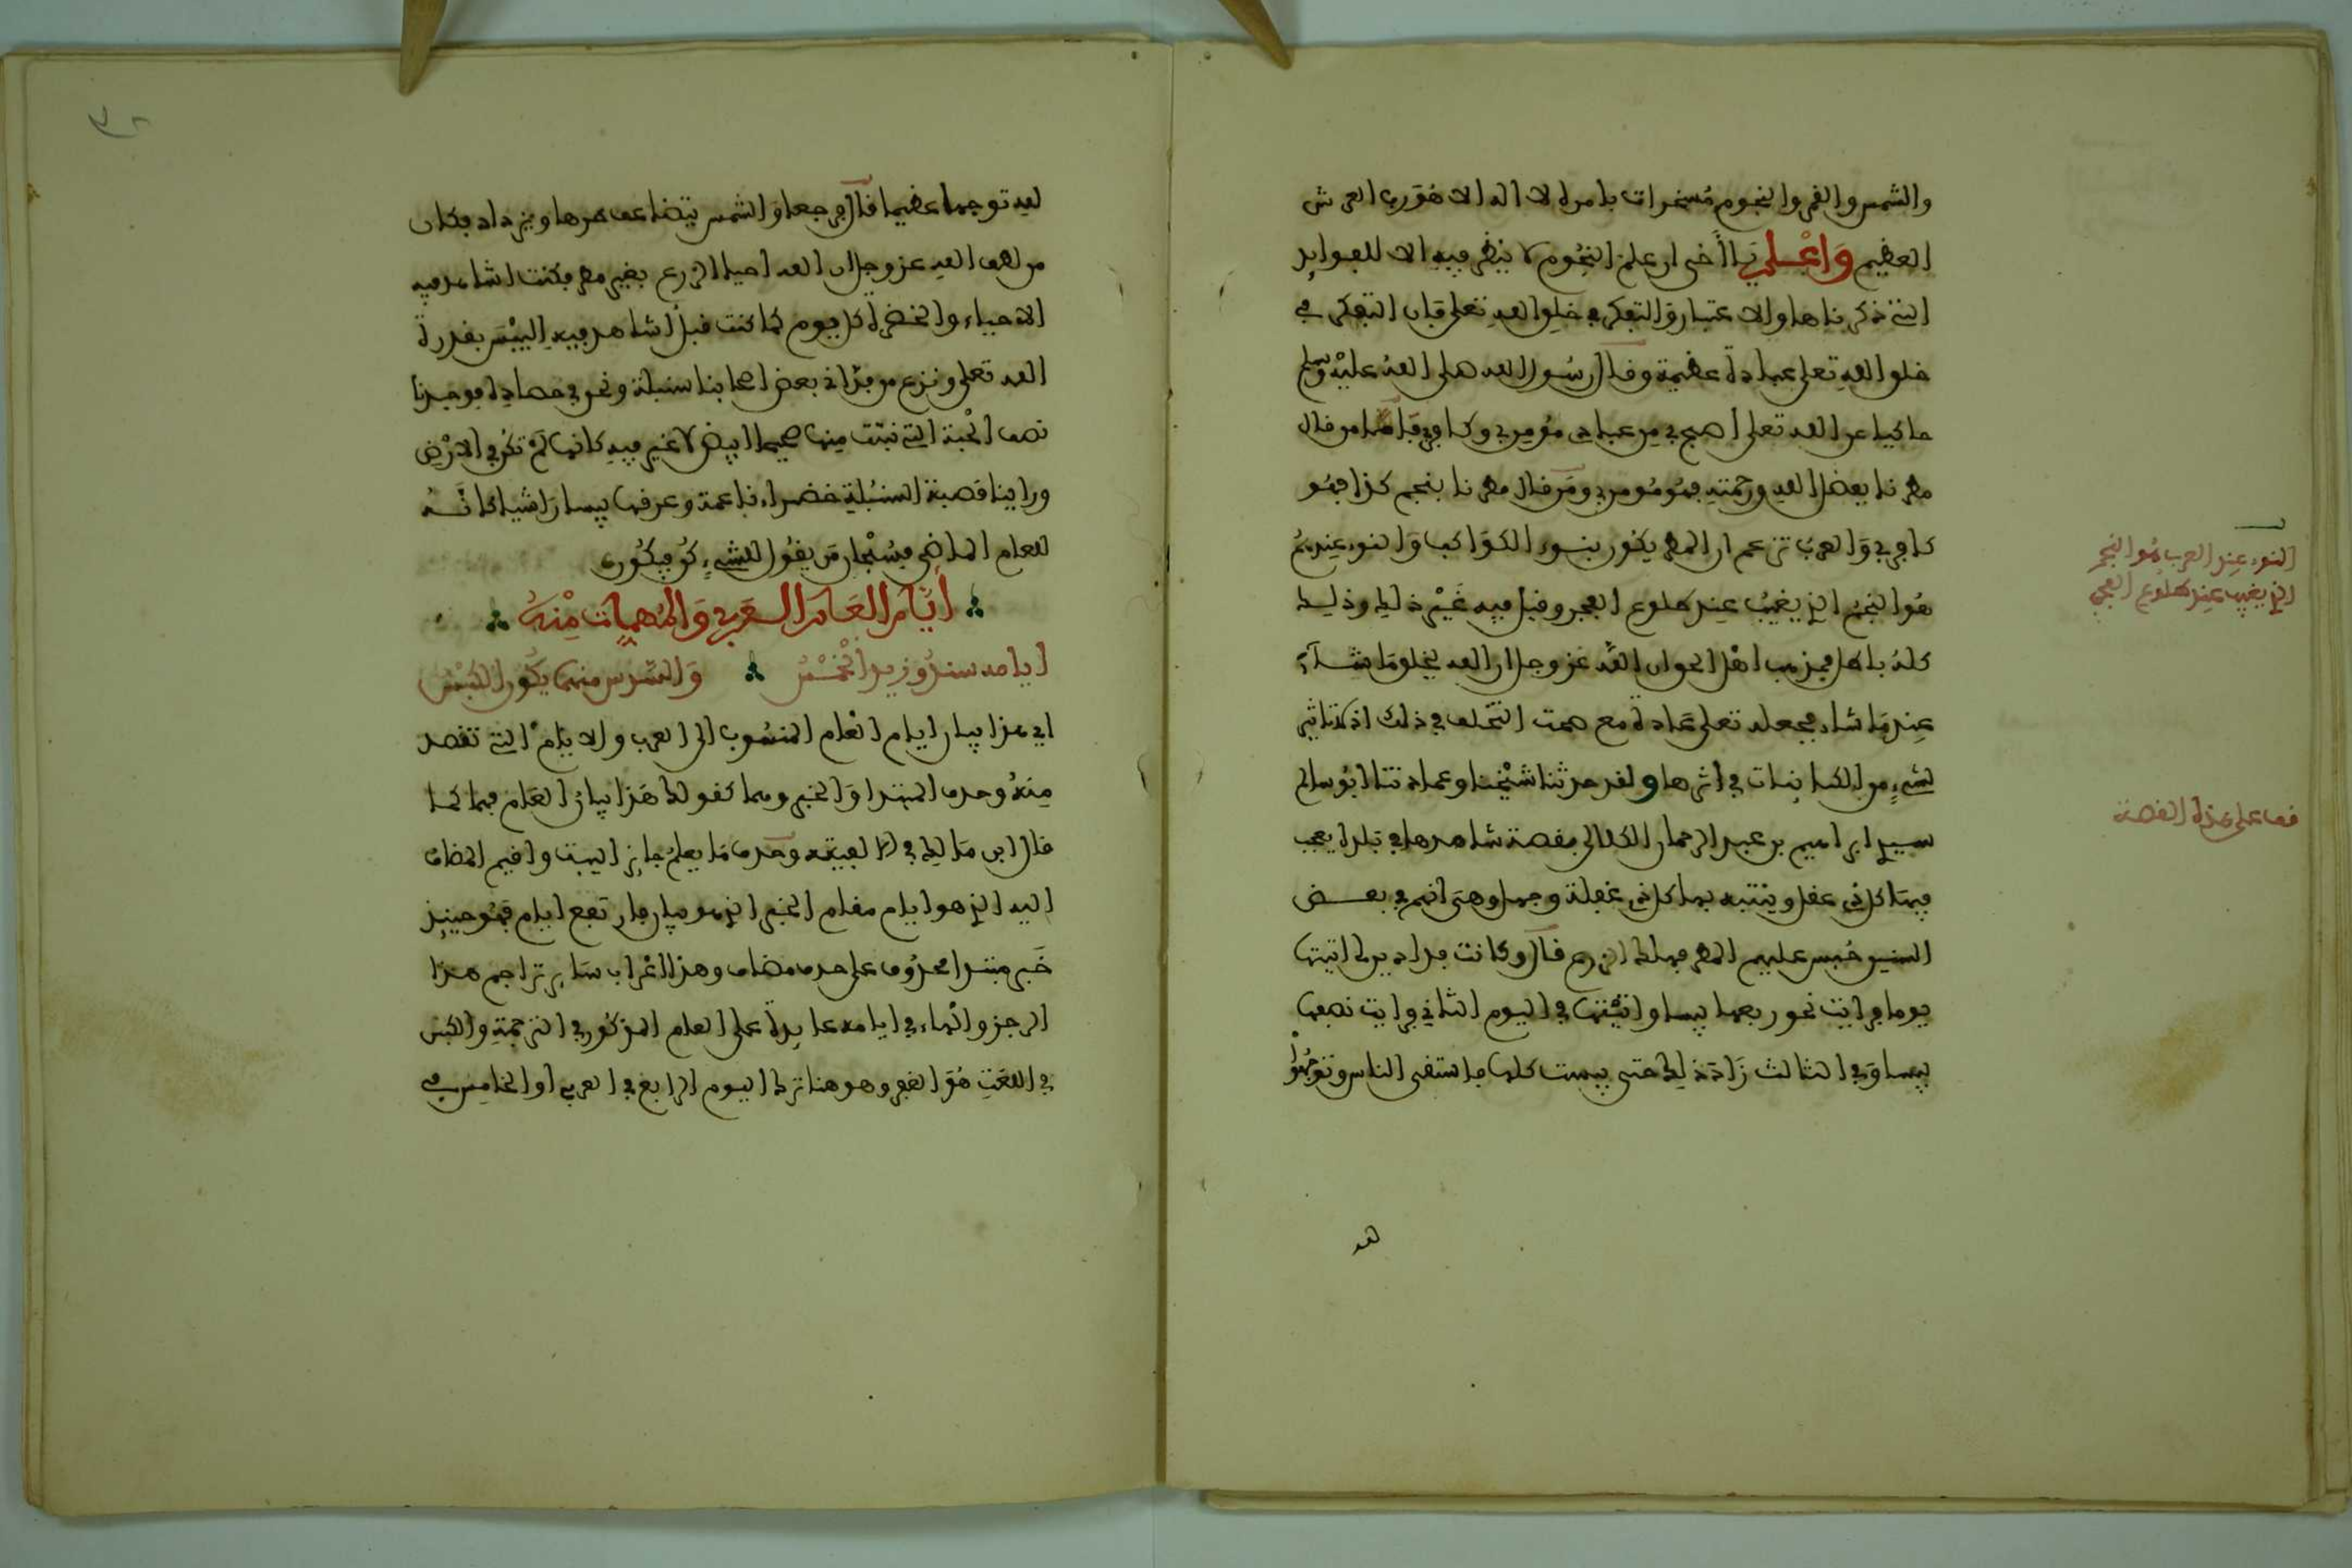 والشمس والقمر والنجوم مسخرات بامره لا اله الا هو رب العرش
العظيم وَاعْلم يا أخي ان علم النجوم لا ينظر فيه الا للفوايد
التي ذكرناها والاعتبار والتفكر في خلق الله تعلى فان التفكر في
خلق الله تعلى عبادة عظيمة وقال رسول الله صلى الله عليه وسلم
حاكيا عن الله تعلى اصبح من عبادي مؤمن بي وكافر فاما من قال
مطرنا بفضل الله ورحمته فهو مؤمن بي ومن قال مطرنا بنجم كذا فهو
كافر بي والعرب تزعم ان المطر يكون بنوء الكواكب والنوء عندهم
هو النجم الذي يغيب عند طلوع الفجر وقيل فيه غير ذلك وذلك
كله باطل ومذهب اهل الحق ان الله عز وجل ان الله يخلق ما شاء
عند ما شاء فجعله تعلى عادة مع صحة التخلف في ذلك اذ لا تاثير
لشيء من الكاينات في اثرها ولقد حدثنا شيخنا وعمادنا ابو سالم
سيدي ابراهيم بن عبد الرحمان الكلالي بقصة شاهدها في بلده يعجب
فيها كل ذي عقل وينتبه بها كل ذي غفلة وجهل وهي انهم في بعض
السنين حبس عليهم المطر فهلك الزرع قال وكانت فدادين لي اتيتها
يوما فرايت نحو ربعها يبس واتيتها في اليوم الثاني فرايت نصفها
يبس وفي الثالث زاد ذلك حتى يبست كلها فاستسقى الناس وتوجهوا
النوء عند العرب هو النجم
الذي يغيب عند طلوع الفجر
قف على هذه القصة
لله
لله توجها عظيما قال فرجعوا والشمس يتضاعف حرها ويزداد فكان
من لطف الله عز وجل ان الله احيا الزرع بغير مطر فكنت اشاهد فيه
الاحياء والخضرة كل يوم كما كنت قبل اشاهد فيه اليبس بقدرة
الله تعلى ونزع من فداني بعض اصحابنا سنبلة ونحن في حصاده فوجدنا
نصف الحبة التي نبتت منها صحيحا ابيض لا تغير فيه كانها لم تكن في الارض
وراينا قصبة السنبلة خضراء ناعمة وعرقها يبسا راشيا كانه
للعام الماضي فسبحان من يقول للشيء كن فيكون
أيام العام العربي والمهمات منه
ايامه سند وزيد الخمس والسدس منها يكون الكبس
اي هذا بيان ايام العام المنسوب الى العرب والايام التي تقصد
منه وحذف المبتدا والخبر وهما كقولك هذا بيان العام فهما كما
قال ابن مالك في الالفية وحذف ما يعلم جايز البيت واقيم المضاف
اليه الذي هو ايام مقام الخبر الذي هو بيان فارتفع ايام فهو حينيذ
خبر مبتدا محذوف على حذف مضاف وهذا اعراب ساير تراجم هذا
الرجز والهاء في ايامه عايدة على العام المذكور في الترجمة والكبس
في اللغة هو الغم وهو هنا ترك اليوم الرابع في العربي او الخامس في